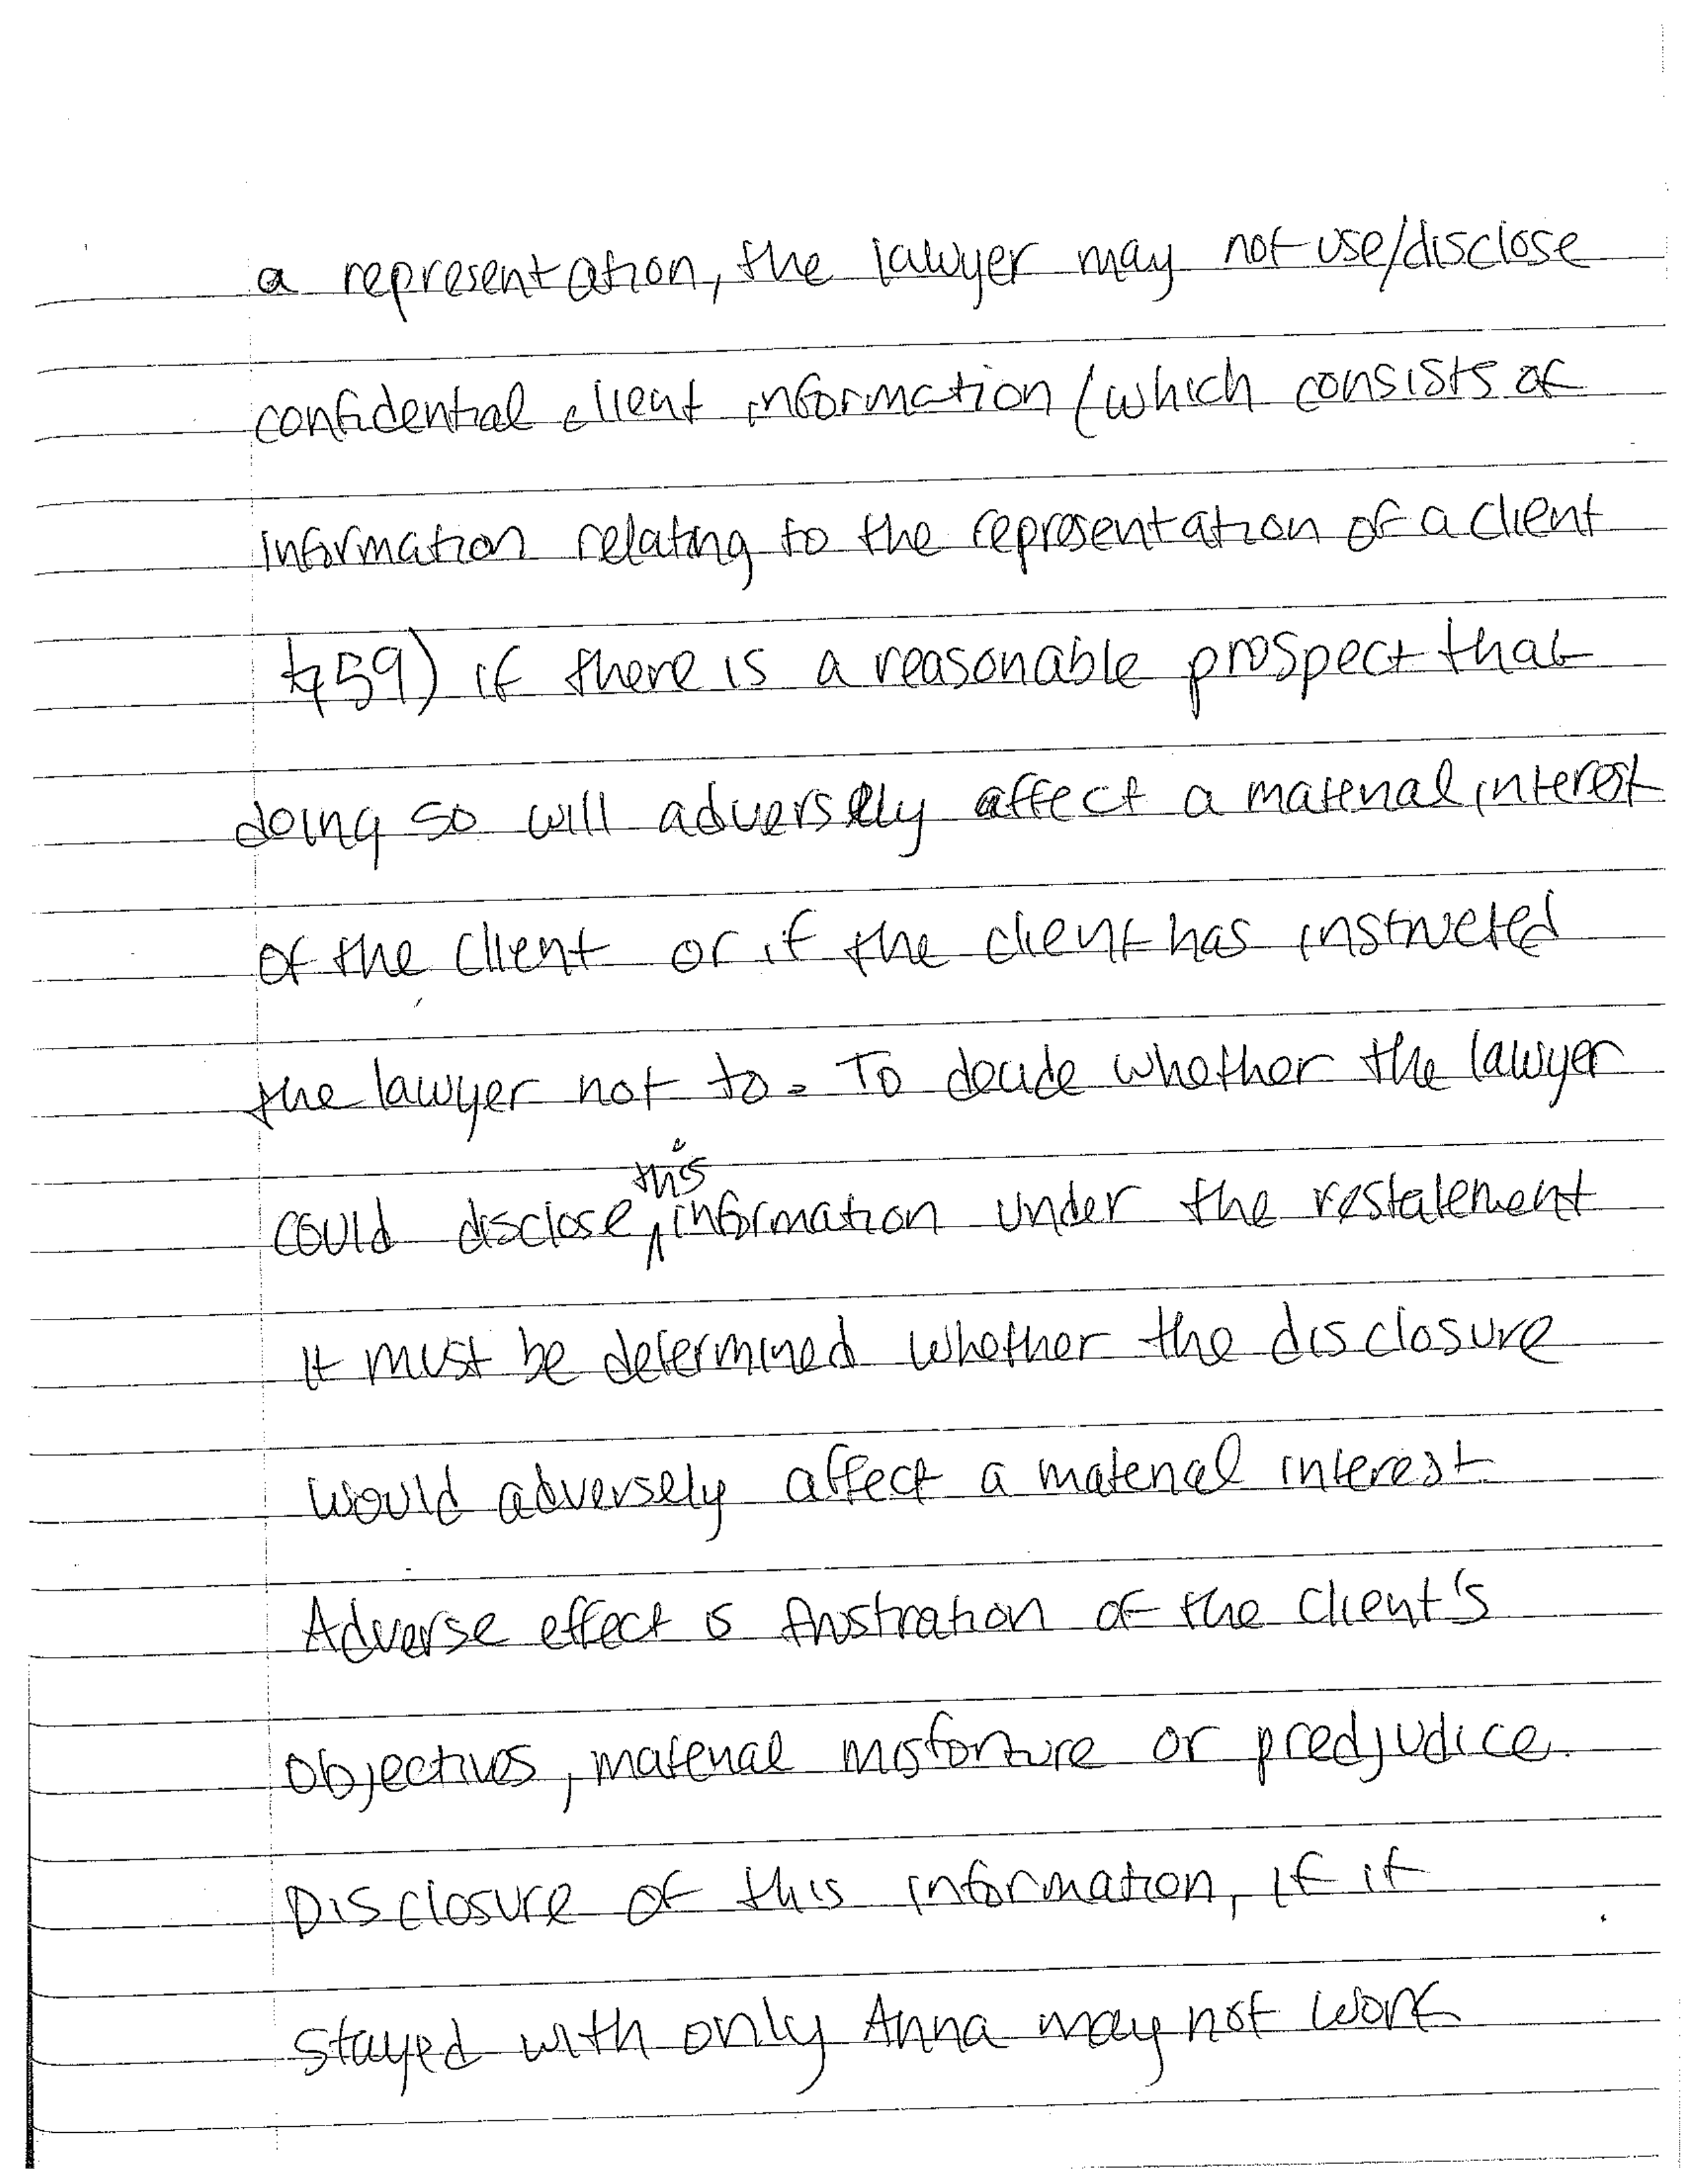 a representation, the lawyer may not use/disclose
confidential client information (which consists of
information relating to the representation of a client
§59) if there is a reasonable prospect that
doing so will adversely affect a material interest
of the client or if the client has instructed
the lawyer not to. To decide whether the lawyer
could disclose this information under the restatement
it must be determined whether the disclosure
would adversely affect a material interest.
Adverse effect is frustration of the client's
objectives, material misfortune or predjudice.
Disclosure of this information, if it
stayed with only Anna may not work